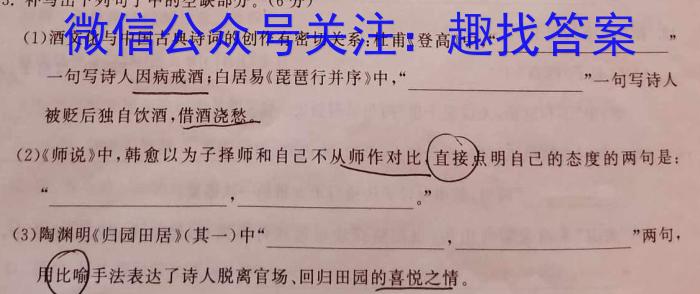 微信公众号关注：趣找答案
补写出下列句子中的空缺部分。(6分)
(1)酒文化与中国古典诗词的创作有密切关系;杜甫《登高》中,“____________”
一句写诗人因病戒酒;白居易《琵琶行并序》中,“____________”一句写诗人
被贬后独自饮酒,借酒浇愁。
(2)《师说》中,韩愈以为子择师和自己不从师作对比,直接点明自己的态度的两句是:
“____________,____________。”
(3)陶渊明《归园田居》(其一)中“____________,____________”两句,
用比喻手法表达了诗人脱离官场、回归田园的喜悦之情。